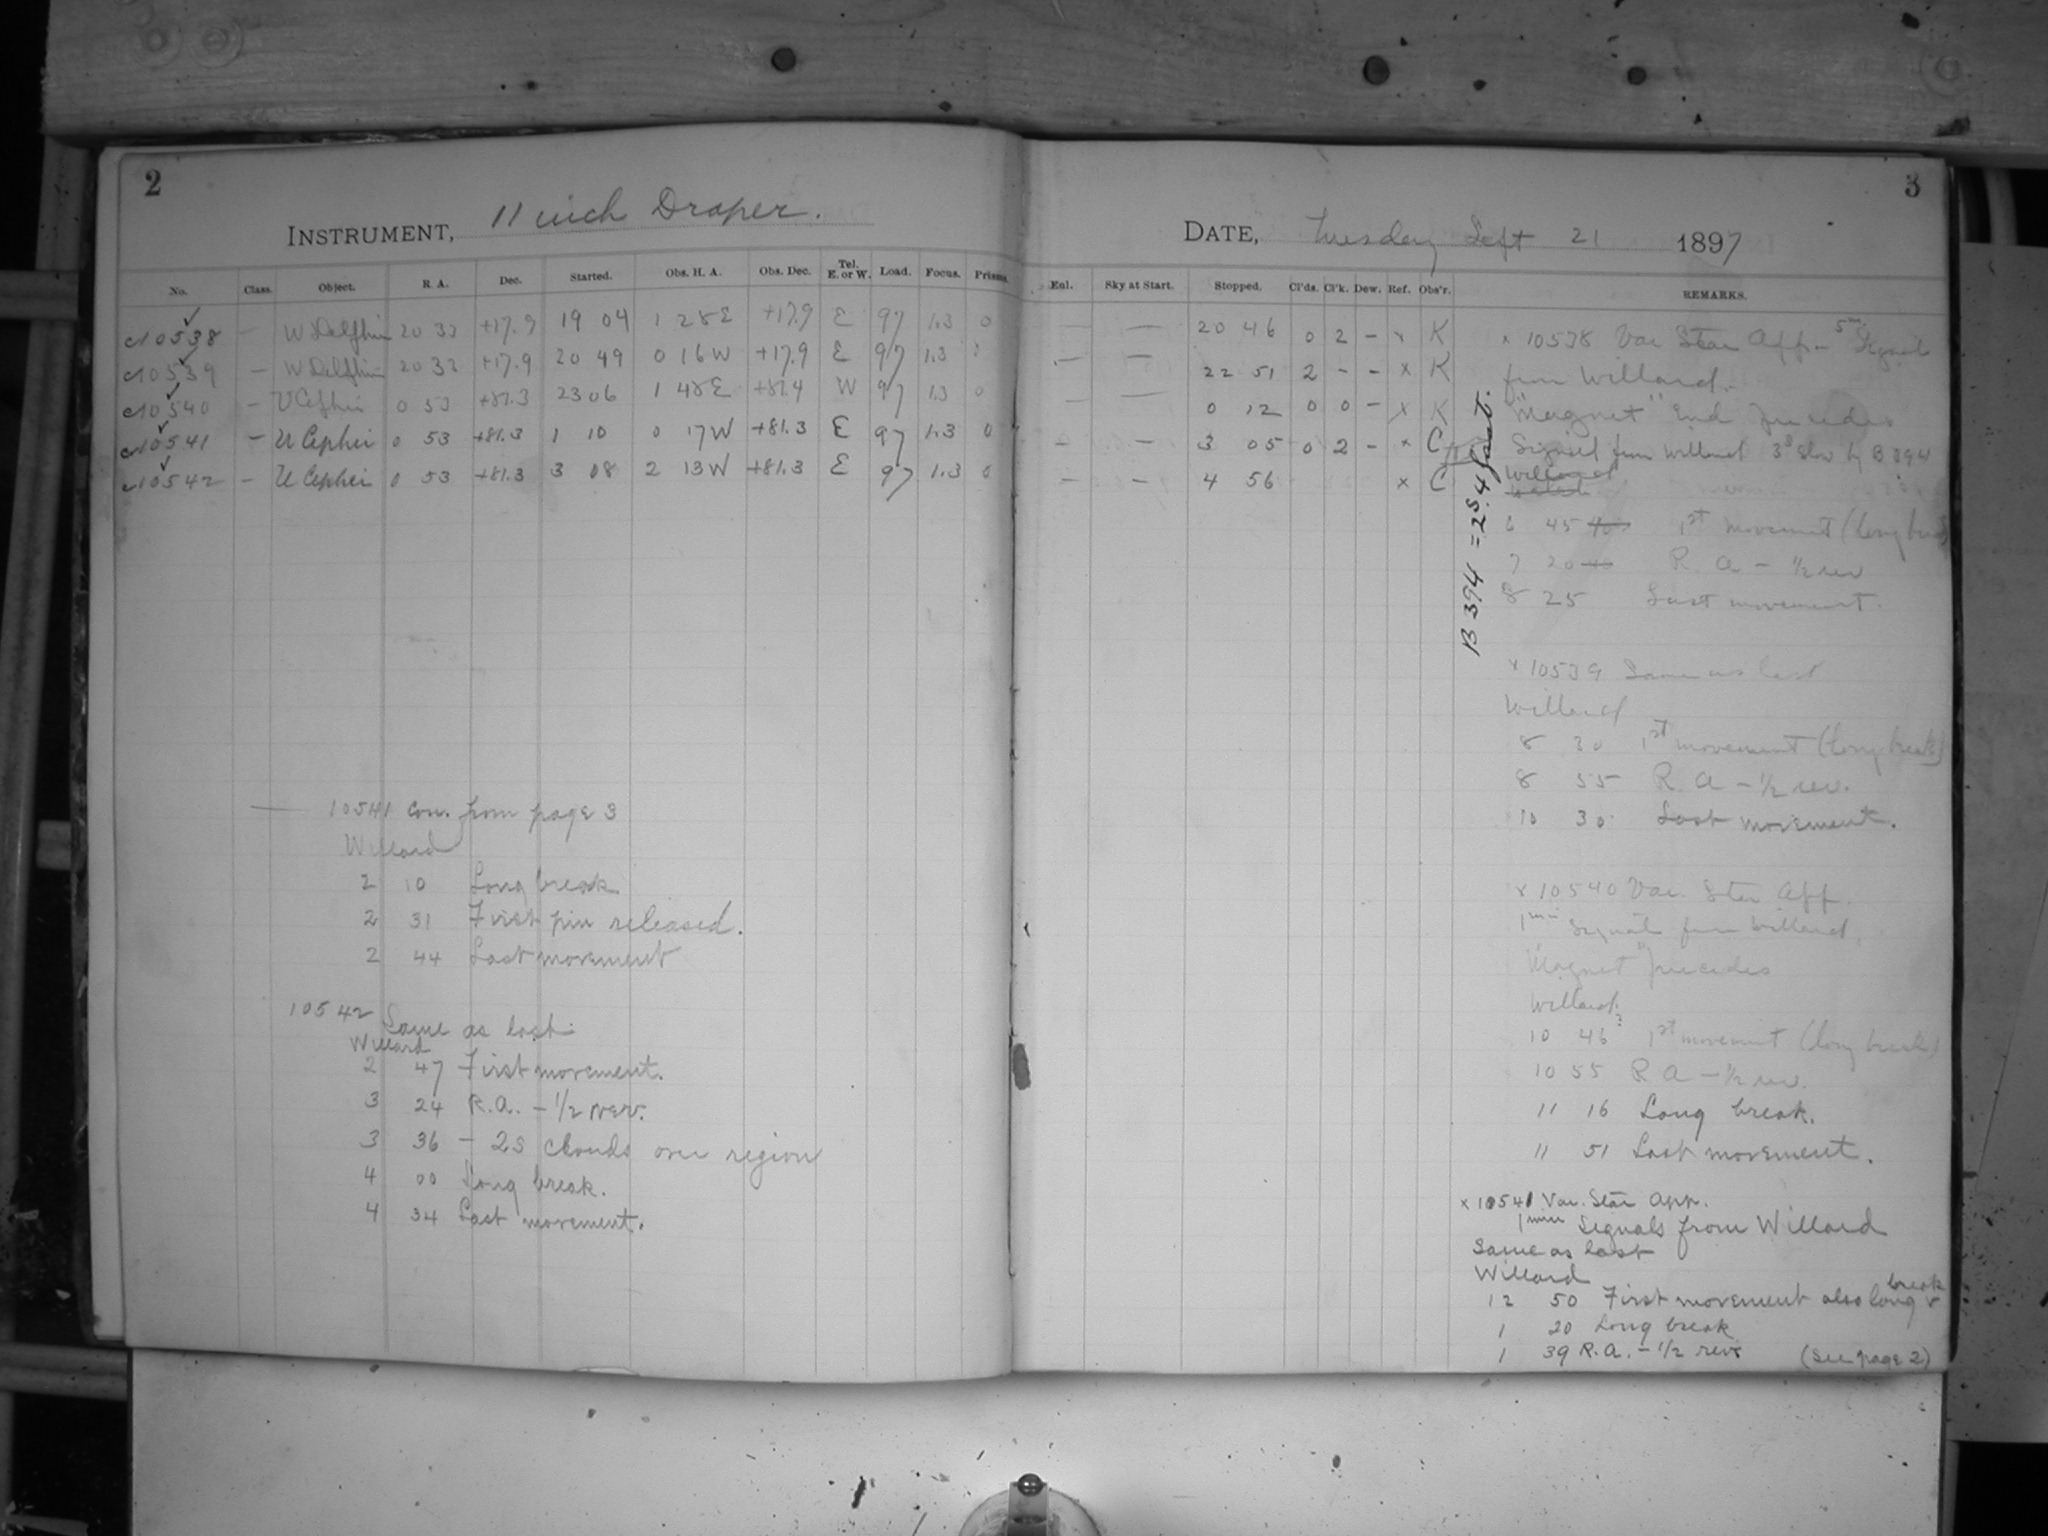 2
INSTRUMENT, 11 inch Draper.
No. Class. Object. R. A. Dec. Started. Obs. H. A. Obs. Dec. Tel. E. or W. Load. Focus. Prisms.
c10538 – W Delphin 20 33 +17.9 19 04 1 28E +17.9 E 97 1.3 0
c10539 – W Delphin 20 33 +17.9 20 49 0 16W +17.9 E 97 1.3 0
c10540 – U Cephei 0 53 +81.3 23 06 1 48E +81.4 W 97 1.3 0
c10541 – U Cephei 0 53 +81.3 1 10 0 17W +81.3 E 97 1.3 0
c10542 – U Cephei 0 53 +81.3 3 08 2 13W +81.3 E 97 1.3 0
10541 Con. from page 3
Willard
2 10 Long break
2 31 First pin released.
2 44 Last movement
10542 Same as last.
Willard
2 47 First movement.
3 24 R.A. – 1/2 rev.
3 36 – 2s clouds over region
4 00 Long break.
4 34 Last movement.
3
DATE, Tuesday Sept 21 1897
Enl. Sky at Start. Stopped. Cl'ds. Cl'k. Dew. Ref. Obs'r. REMARKS.
– – 20 46 0 2 – x K
– – 22 51 2 – – x K
– – 0 12 0 0 – x K
– – 3 05 0 2 – x C
– – 4 56 x C
B 394 = 25.4 fast.
x 10538 Var Star App – 5m Signal
from Willard.
"Magnet" End precedes
Signal from Willard 3s slow by B 394
Willard
6 45 1st movement (long break)
7 20 R. A – 1/2 rev
8 25 Last movement.
x 10539 Same as last
Willard
8 30 1st movement (long break)
8 55 R. A – 1/2 rev.
10 30 Last movement.
x 10540 Var. Star App.
1min Signals from Willard.
"Magnet" precedes
Willard.
10 46 1st movement (long break)
10 55 R A – 1/2 rev.
11 16 Long break.
11 51 Last movement.
x 10541 Var. Star App.
1min Signals from Willard
Same as last
Willard
12 50 First movement also long break
1 20 Long break
1 39 R.A. – 1/2 rev. (see page 2)